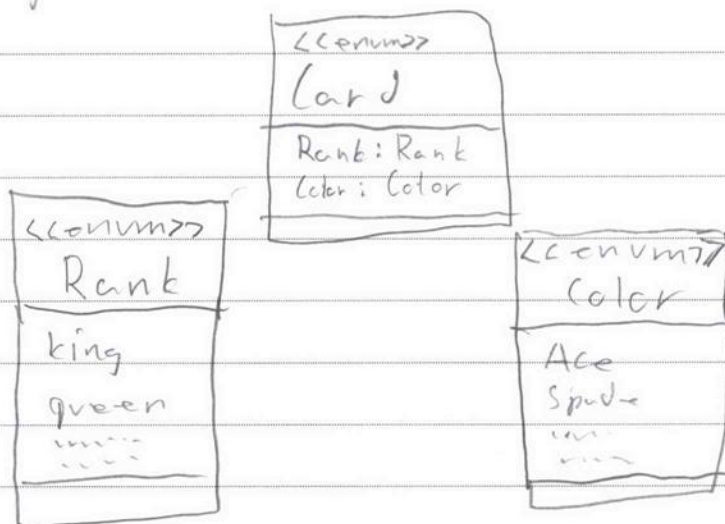 <<enum>>
Card
Rank: Rank
Color: Color
<<enum>>
Rank
king
queen
<<enum>>
Color
Ace
Spade